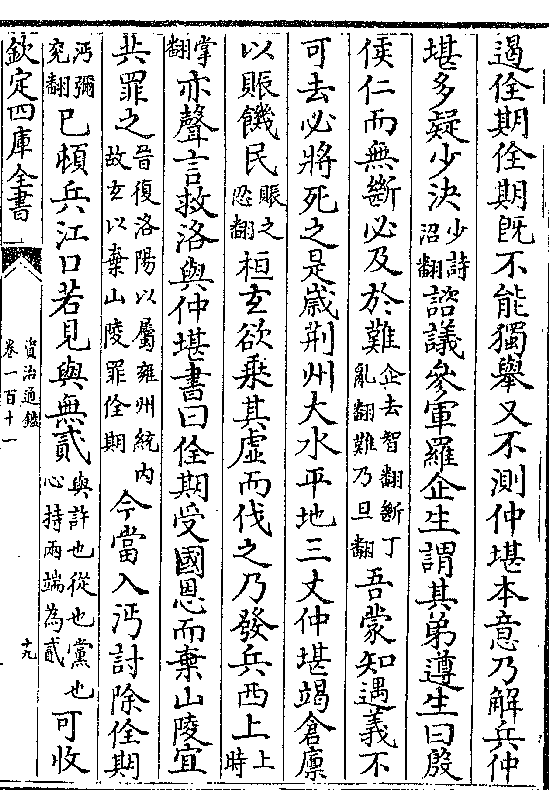 遏佺期佺期旣不能獨舉又不測仲堪本意乃解兵仲
堪多疑少決少詩沼翻諮議參軍羅企生謂其弟遵生曰殷
侯仁而無斷必及於難企去智翻斷丁亂翻難乃旦翻吾蒙知遇義不
可去必將死之是歲荆州大水平地三丈仲堪竭倉廩
以賑饑民賑之忍翻桓玄欲乘其虛而伐之乃發兵西上上時
掌翻亦聲言救洛與仲堪書曰佺期受國恩而棄山陵宜
共罪之晉復洛陽以屬雍州統内故玄以棄山陵罪佺期今當入沔討除佺期
沔彌兖翻已頓兵江口若見與無貳與許也從也黨也心持兩端為貳可收
欽定四庫全書
資治通鑑
卷一百十一
十九